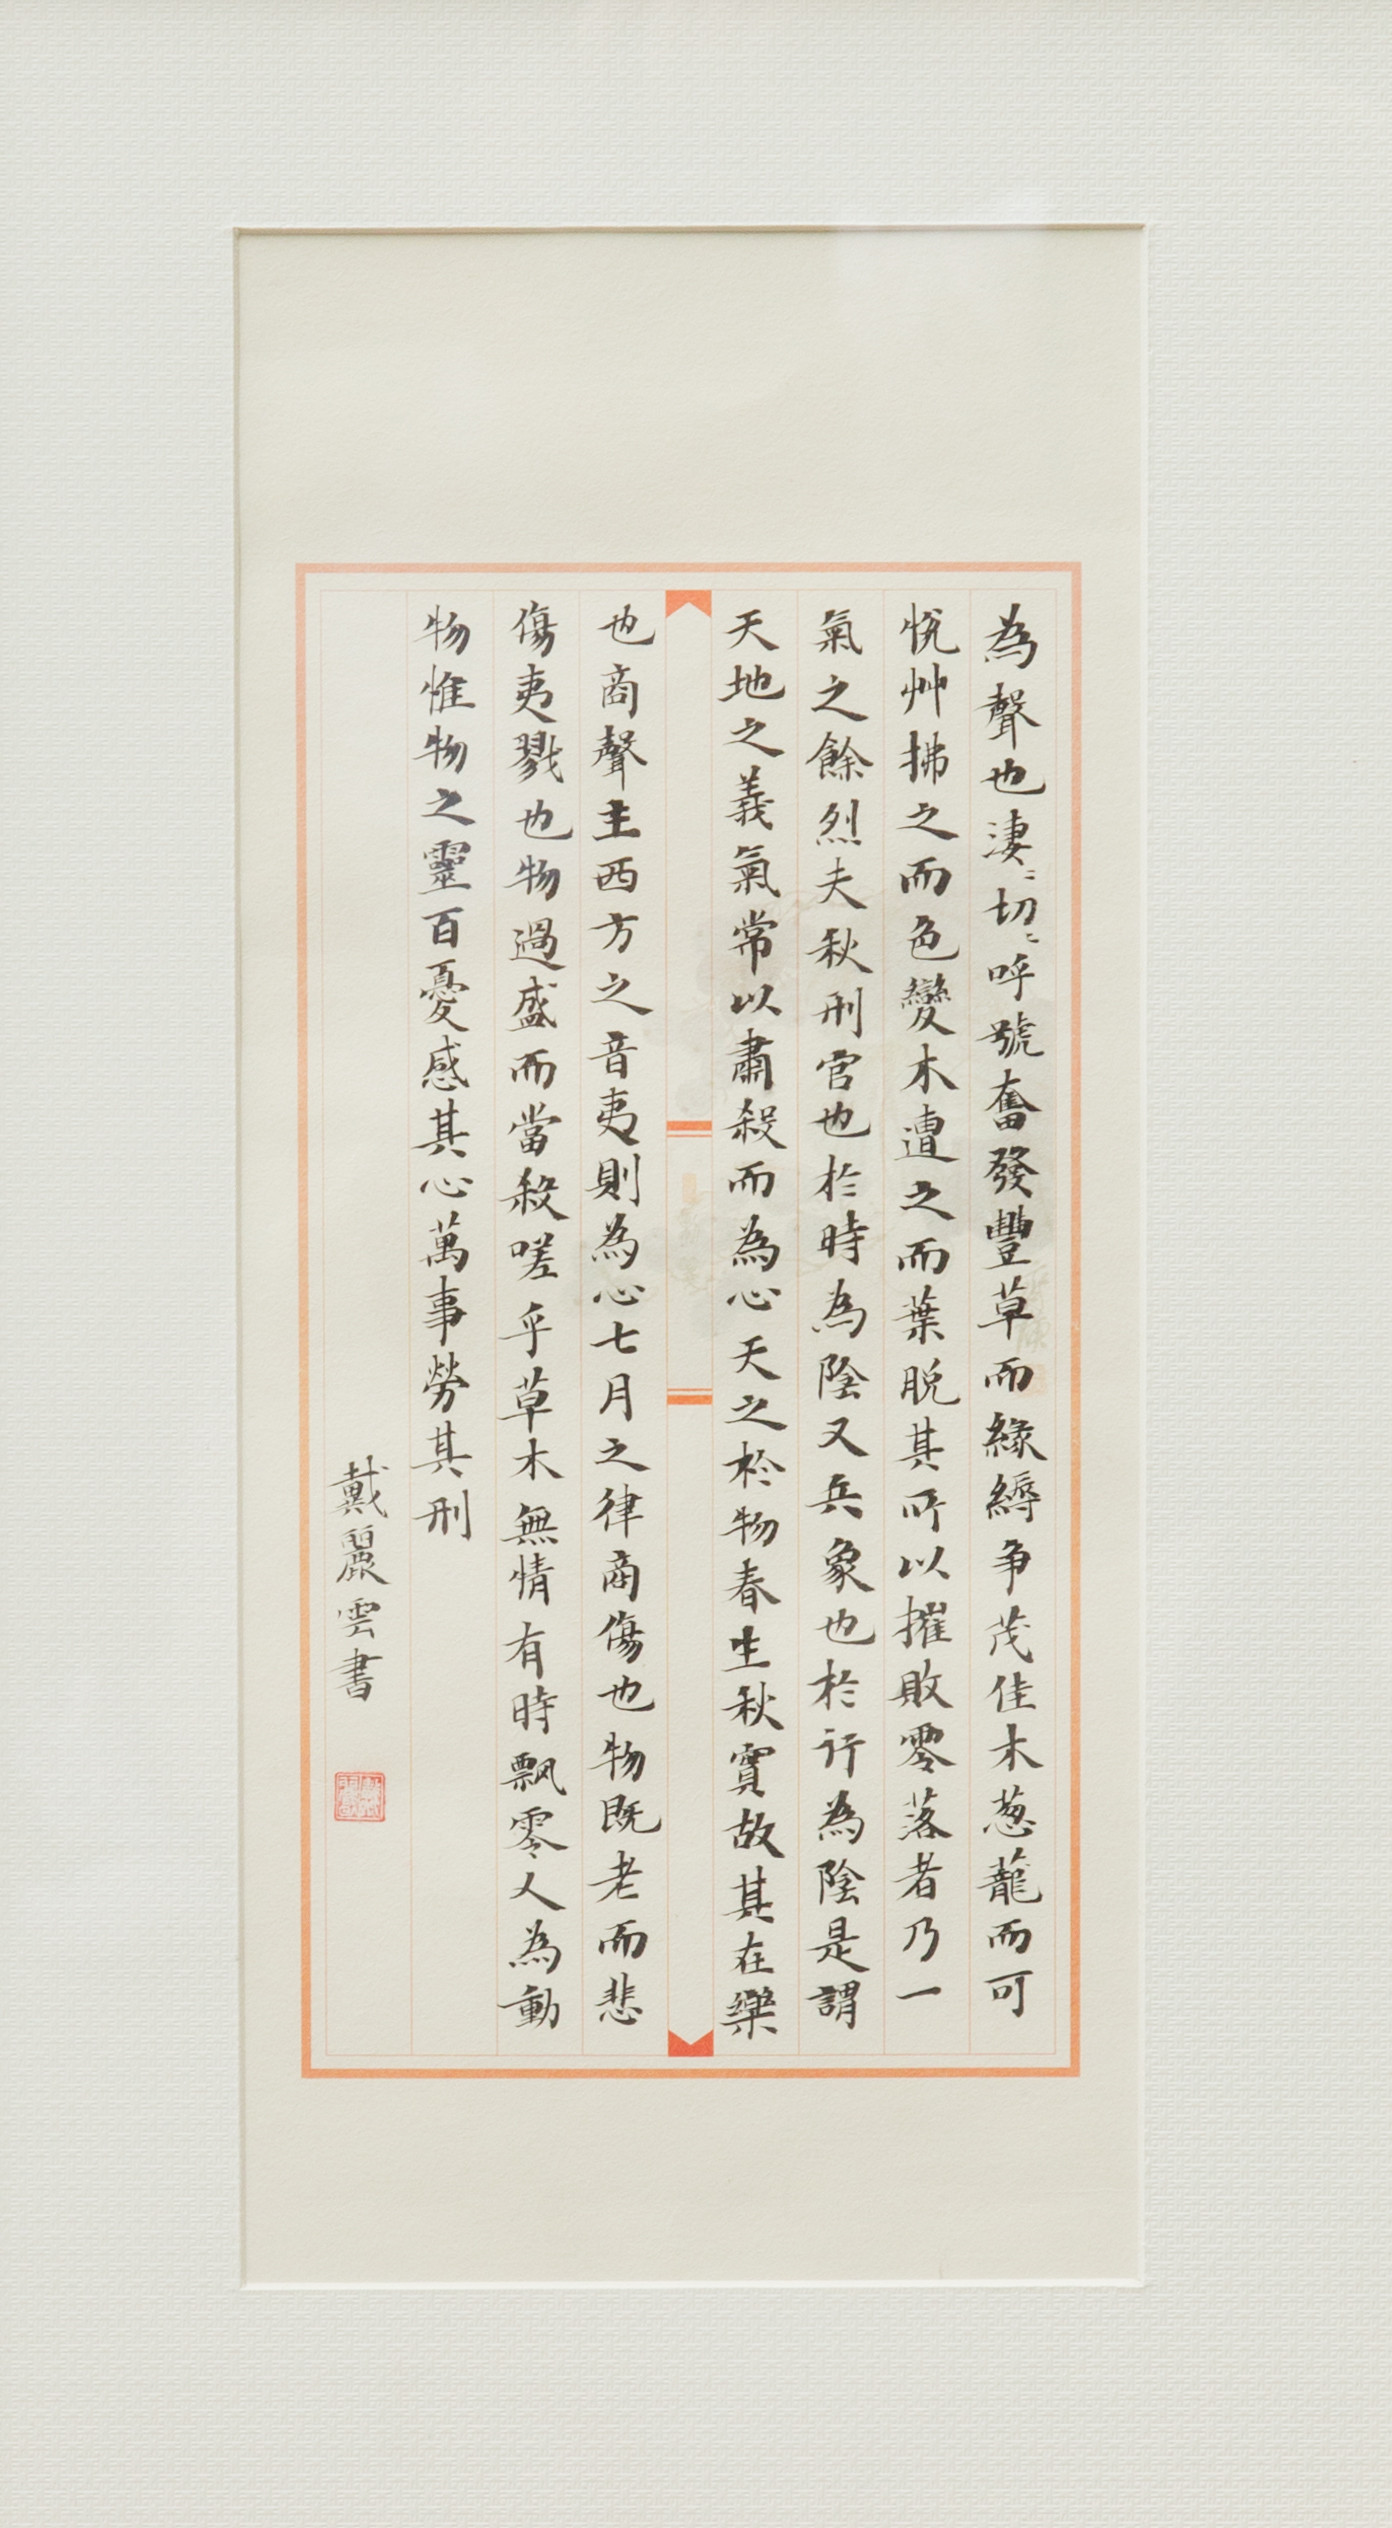 為聲也淒〻切〻呼號奮發豐草而緣縟争茂佳木葱蘢而可
悅艸拂之而色變木遭之而葉脫其所以摧敗零落者乃一
氣之餘烈夫秋刑官也於時為陰又兵象也於行為陰是謂
天地之義氣常以肅殺而為心天之於物春生秋實故其在樂
也商聲主西方之音夷則為心七月之律商傷也物既老而悲
傷夷戮也物過盛而當殺嗟乎草木無情有時飄零人為動
物惟物之靈百憂感其心萬事勞其刑
戴麗雲書